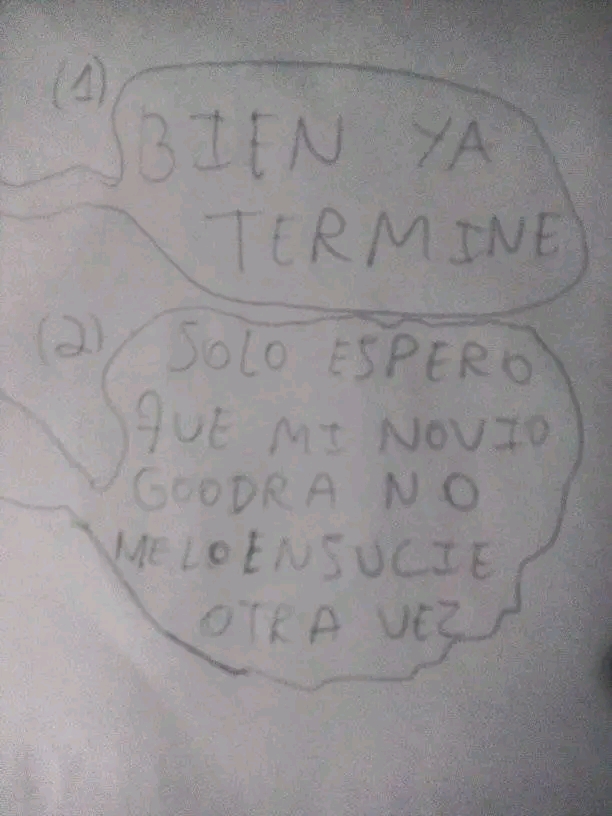 (1)
BIEN YA
TERMINE
(2)
SOLO ESPERO
QUE MI NOVIO
GOODRA NO
ME LO ENSUCIE
OTRA VEZ